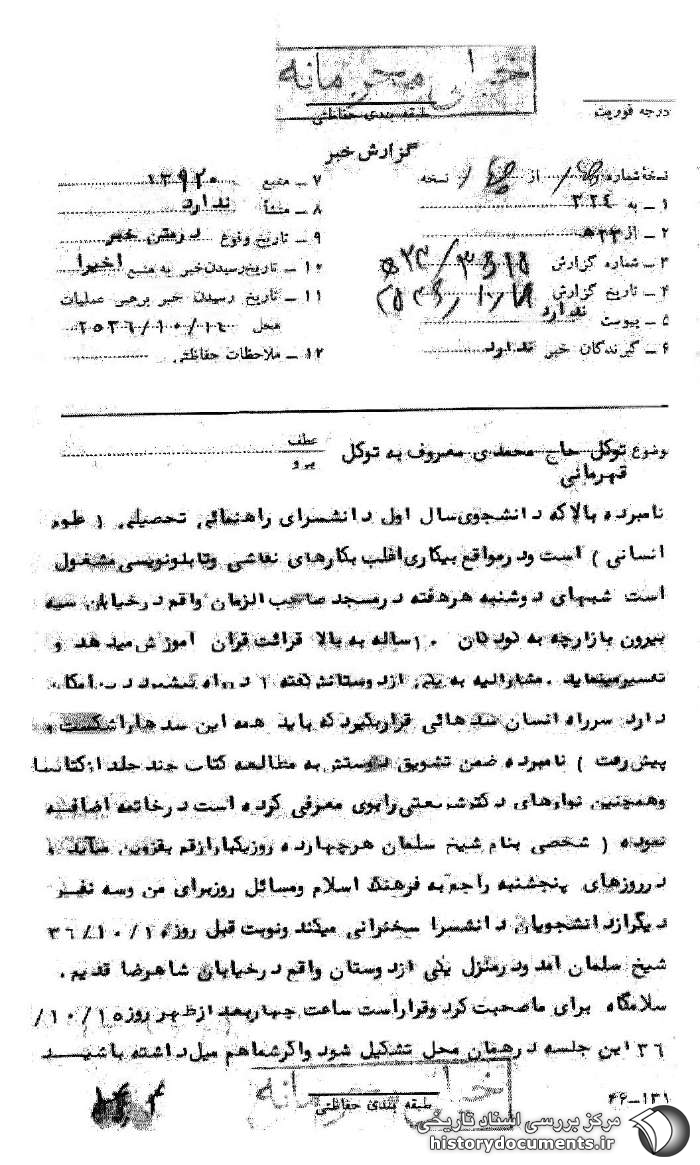 خیلی محرمانه
طبقه بندی حفاظتی
درجه فوریت
گزارش خبر
نسخه شماره از نسخه
۱ ـ به ۳۲۴
۲ ـ از ۲۳ه
۳ ـ شماره گزارش
۴ ـ تاریخ گزارش
۵ ـ پیوست ندارد
۶ ـ گیرندگان خبر ندارد
۷ ـ منبع ۱۳۹۲۰
۸ ـ منشأ ندارد
۹ ـ تاریخ وقوع درمتن خبر
۱۰ ـ تاریخ رسیدن خبر به منبع اخیرا
۱۱ ـ تاریخ رسیدن خبر برهبر عملیات
محل ۲۵۳۶/۱۰/۱۴
۱۲ ـ ملاحظات حفاظتی
موضوع توکل حاج محمدی معروف به توکل
قهرمانی
عطف
پیرو
نامبرده بالاکه دانشجوی سال اول دانشسرای راهنمائی تحصیلی ( علوم
انسانی ) است ودرمواقع بیکاری اغلب بکارهای نقاشی وتابلونویسی مشغول
است شبهای دوشنبه هرهفته درمسجد صاحب الزمان واقع درخیابان سپه
بیرون بازارچه به کودکان ۱۰ ساله به بالا قرائت قرآن آموزش میدهد و
تفسیرمینماید . مشارالیه به یکی ازدوستانش گفته (
دارد سرراه انسان سدهائی قراربگیرد که باید همه این سدهاراشکست و
پیش رفت ) نامبرده ضمن تشویق دوستش به مطالعه کتاب چند جلد ازکتابها
وهمچنین نوارهای دکترشریعتی رابوی معرفی کرده است درخاتمه اضافه
نموده ( شخصی بنام شیخ سلمان هرچهارده روزیکبارازقم بقزوین میآید و
درروزهای پنجشنبه راجع به فرهنگ اسلام ومسائل روزبرای من وسه نفر
دیگرازدانشجویان دانشسرا سخنرانی میکند ونوبت قبل روز ۳۶/۱۰/۱۵
شیخ سلمان آمد ودرمنزل یکی ازدوستان واقع درخیابان شاهرضا قدیم .
سلامگاه برای ماصحبت کرد وقراراست ساعت چهاربعد ازظهر روز ۱۵/۱۰/
۳۶ این جلسه درهمان محل تشکیل شود واگرشماهم میل داشته باشید
خیلی محرمانه
طبقه بندی حفاظتی
۱۳۱-۴۶
مرکز بررسی اسناد تاریخی
historydocuments.ir